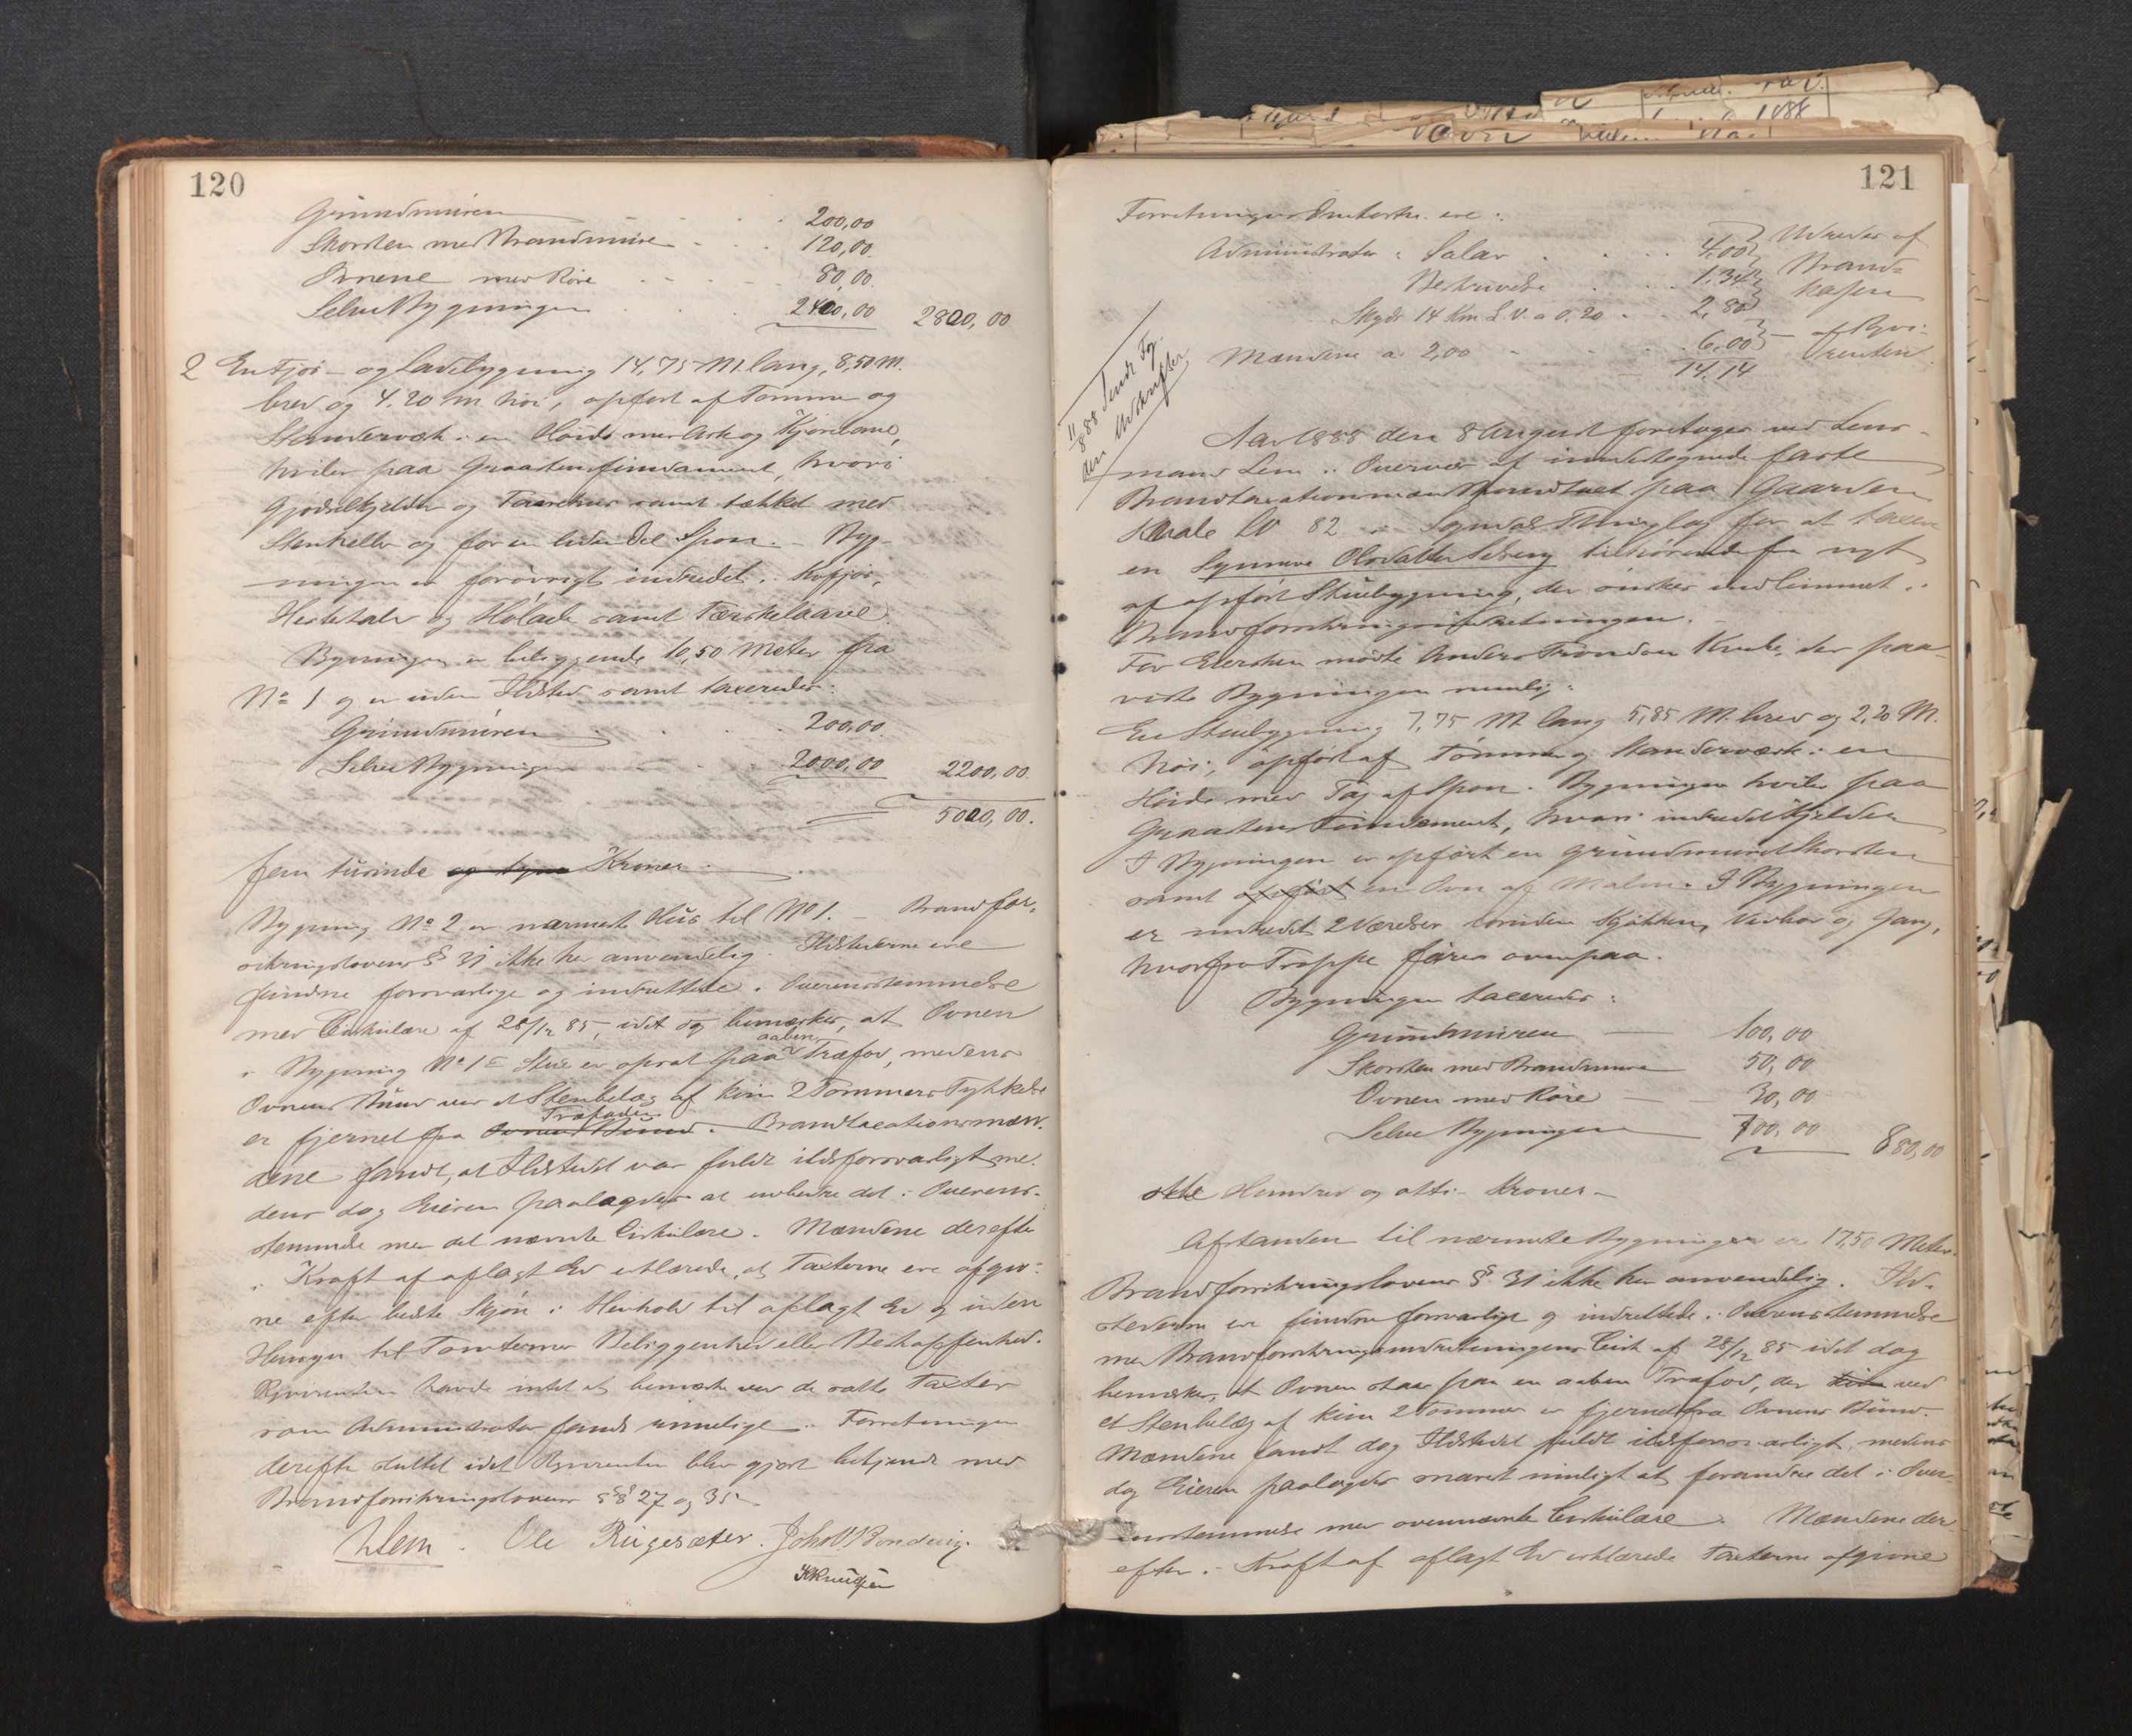 120
Grundmuren 200,00
Skorsten med Brandmure 120,00
Ovnene med Röre 80,00
Selve Bygningen 2400,00 2800,00
2 En Fjös- og Ladebygning 14,75 M. lang, 8,50 M.
bred og 4.20 m höi, opfört af Tömmer og
Standerværk i en Höide med Ark og Kjörelane,
hviler paa Graastensfundament, hvori
Gjödselkjelder og samt tækket med
Stenheller og for en liden Del Spon. Byg-
ningen er forövrigt indredet i Kofjös,
Hestestald og Hölade samt Tærskelaave.
Bygningen er beliggende 10,50 Meter fra
No 1 og er uden Ildsted samt taxeredes:
Grundmuren 200,00
Selve Bygningen 2000,00 2200,00
5000,00.
fem tusinde og Kroner.
Bygning No 2 er nærmeste Hus til No 1. Brandfor-
sikringslovens § 31 ikke her anvendelig. Ildstederne ere
fundne forsvarlige og indrettede i Overensstemmelse
med Cirkulære af 28/12 85, idet dog bemærkes, at Ovnen
aaben
i Bygning No 1 Stue er opsat paa Træfod, medens
Ovnens Bund ved et Stenbelæg af kun 2 Tommers Tykkelse
Træfoden
er fjernet fra Ovnens Bund. Brandtaxationsmæn-
dene fandt, at Ildstedet var fuldt ildsforsvarligt, me-
dens dog Eieren paalagdes at udbedre det i Overens-
stemmelse med det nævnte Cirkulære. Mændene derefter
i Kraft af aflagt Ed erklærede, at Taxterne ere afgiv-
ne efter bedste Skjön i Henhold til aflagt Ed og uden
Hensyn til Tomternes Beliggenhed eller Beskaffenhed.
Rekvirenten havde intet at bemærke ved de satte Taxter
som Administrator fandt rimelige. Forretningen
derefter sluttet idet Rekvirenten blev gjort bekjendt med
Brandforsikringslovens §§ 27 og 35
Lem. Ole Rügesæter. Joh. O. Bondevig.
K Knudsen
121
Forretningens Omkostn. ere:
Administrator: Salar 4.00 Udredes af
Beskrivelse 1.34 Brand-
Skyds 14 Km L.V. a 0.20 2,80 kassen
Mændene a. 2,00 6,00 - af Rekvi-
14.14 renten
1888 sendt Fog-
den Udskrifter
Aar 1888 den 8 August foretoges ved Lens-
mand Lem i Overvær af undertegnede faste
Brandtaxationsmænd Brandtaxt paa Gaarden
Kvale LN 82 i Sogndal Thinglag for at taxere
en Synneve Olsdatter Seberg tilhørende fra nyt
af opfört Stuebygning, der önskes indlemmet i
Brandforsikringsindretningen.
For Eiersken mödte Anders Trondsen Kvale, der paa-
viste Bygningen nemlig:
En Stuebygning 7,75 M. lang 5,85 M. bred og 2,20 M.
höi, opfört af Tömmer og Standerværk i en
Höide med Tag af Spon. Bygningen hviler paa
Graastens Fundament, hvori indredet Kjelder
I Bygningen er opfört en grundmuret Skorsten
samt opfört en Ovn af Malm. I Bygningen
er indredet 2 Værelser foruden Kjökken, Vedbod og Gang,
hvorfra Trappe förer ovenpaa.
Bygningen taxeredes:
Grundmuren 100,00
Skorsten med Brandmure 50,00
Ovnen med Röre 30,00
Selve Bygningen 700,00 880,00
otte Hundrede og otti Kroner
Afstanden til nærmeste Bygning er 17,50 Meter.
Brandforsikringslovens § 31 ikke her anvendelig. Ild-
stederne ere fundne forsvarlige og indrettede i Overensstemmelse
med Brandforsikringsindretningens Cirk af 28/12 85 idet dog
bemærkes, at Ovnen staar paa en aaben Træfod, der kun ved
et Stenbelæg af kun 2 Tommer er fjernet fra Ovnens Bund.
Mændene fandt dog Ildstedet fuldt ildsforsvarligt, medens
dog Eieren paalagdes snarest muligt at forandre det i Over-
ensstemmelse med ovennævnte Cirkulære. Mændene der-
efter i Kraft af aflagt Ed erklærede Taxterne afgivne